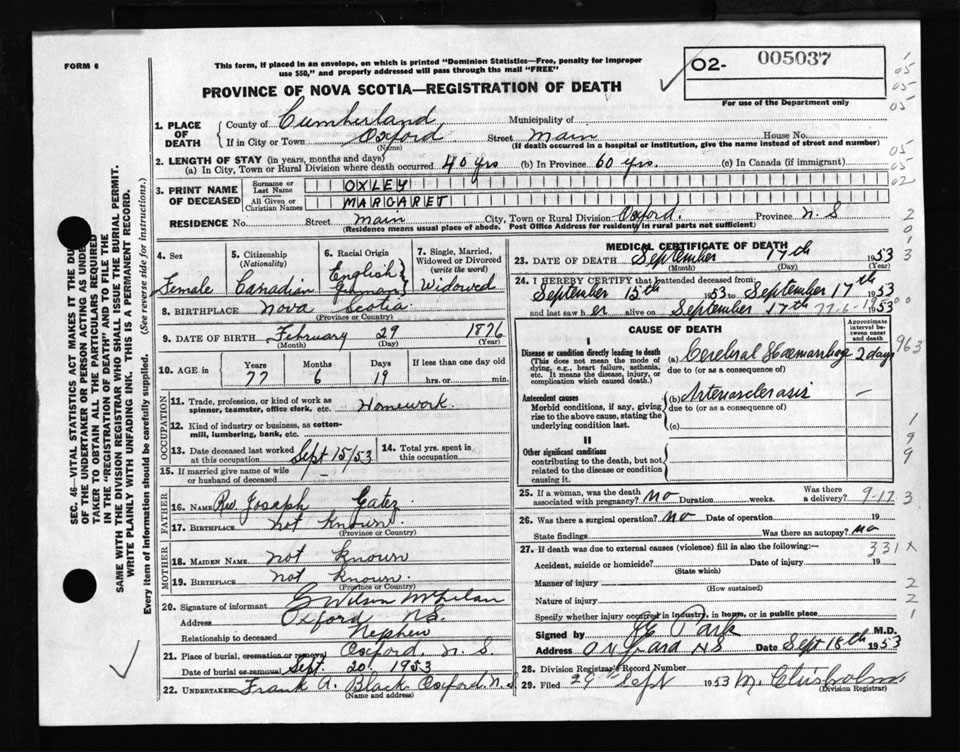 FORM 6
This form, if placed in an envelope, on which is printed "Dominion Statistics—Free, penalty for improper
use $50," and properly addressed will pass through the mail "FREE"
PROVINCE OF NOVA SCOTIA—REGISTRATION OF DEATH
02- 005037
For use of the Department only
1. PLACE OF DEATH
County of Cumberland Municipality of
If in City or Town Oxford Street Main House No.
(Name) (If death occurred in a hospital or institution, give the name instead of street and number)
2. LENGTH OF STAY (in years, months and days)
(a) In City, Town or Rural Division where death occurred 40 yrs (b) In Province 60 yrs. (c) In Canada (if immigrant)
3. PRINT NAME OF DECEASED
Surname or Last Name OXLEY
All Given or Christian Names MARGARET
RESIDENCE No. Street Main City, Town or Rural Division Oxford. Province N.S
(Residence means usual place of abode. Post Office Address for residency in rural parts not sufficient)
4. Sex Female
5. Citizenship (Nationality) Canadian
6. Racial Origin English German
7. Single, Married, Widowed or Divorced (write the word) Widowed
8. BIRTHPLACE Nova Scotia
(Province or Country)
9. DATE OF BIRTH February 29 1876
(Month) (Day) (Year)
10. AGE in Years Months Days If less than one day old
77 6 19 hrs. or min.
OCCUPATION
11. Trade, profession, or kind of work as
spinner, teamster, office clerk, etc. Homework.
12. Kind of industry or business, as cotton-
mill, lumbering, bank, etc.
13. Date deceased last worked
at this occupation Sept 15/53
14. Total yrs. spent in
this occupation
15. If married give name of wife
or husband of deceased
FATHER
16. Name Rev. Joseph Gatez
17. Birthplace not known.
(Province or Country)
MOTHER
18. MAIDEN NAME not known
19. BIRTHPLACE not known.
(Province or Country)
20. Signature of informant
Address Oxford N.S.
Relationship to deceased Nephew
21. Place of burial, cremation or removal Oxford, N. S.
Date of burial or removal Sept. 20. 1953
22. UNDERTAKER Frank A. Black Oxford, N. S
(Name and address)
MEDICAL CERTIFICATE OF DEATH
23. DATE OF DEATH September 17th 1953
(Month) (Day) (Year)
24. I HEREBY CERTIFY that I attended deceased from:
September 15th 1953 to September 17th 1953
and last saw her alive on September 17th 1953
CAUSE OF DEATH
Approximate interval between onset and death
I
Disease or condition directly leading to death
(This does not mean the mode of
dying, e.g., heart failure, asthenia,
etc. It means the disease, injury, or
complication which caused death.)
(a) Cerebral Haemorrhage 2 days
due to (or as a consequence of)
Antecedent causes
Morbid conditions, if any, giving
rise to the above cause, stating the
underlying condition last.
(b) Arteriosclerosis —
due to (or as a consequence of)
(c)
II
Other significant conditions
contributing to the death, but not
related to the disease or condition
causing it.
25. If a woman, was the death
associated with pregnancy? No Duration weeks. Was there
a delivery? 9-17 3
26. Was there a surgical operation? No Date of operation 19
State findings Was there an autopsy? No
27. If death was due to external causes (violence) fill in also the following:— 331 X
Accident, suicide or homicide? Date of injury 19
(State which)
Manner of injury
(How sustained)
Nature of injury
Specify whether injury occurred in industry, in home, or in public place
Signed by M.D.
Address Date Sept 18th 1953
28. Division Registrar's Record Number
29. Filed 29th Sept 1953 M. Chisholm
(Division Registrar)
SEC. 46—VITAL STATISTICS ACT MAKES IT THE DUTY
OF THE UNDERTAKER OR PERSON ACTING AS UNDER-
TAKER TO OBTAIN ALL THE PARTICULARS REQUIRED
IN THE "REGISTRATION OF DEATH" AND TO FILE THE
SAME WITH THE DIVISION REGISTRAR WHO SHALL ISSUE THE BURIAL PERMIT.
WRITE PLAINLY WITH UNFADING INK. THIS IS A PERMANENT RECORD.
Every item of information should be carefully supplied. (See reverse side for instructions.)